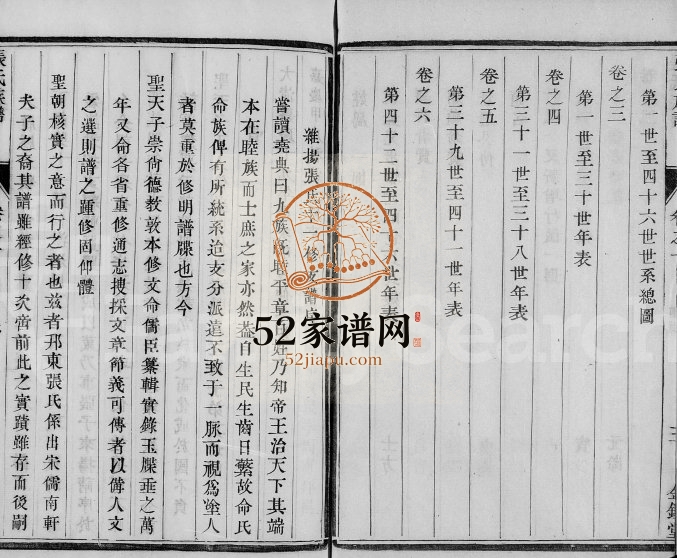 第一世至四十六世世系總圖
卷之三
第一世至三十世年表
卷之四
第三十一世至三十八世年表
卷之五
第三十九世至四十一世年表
卷之六
第四十二世至四十六世年表
金鑑堂
維揚張氏
修族譜
嘗讀堯典曰九族既睦平章百姓乃知帝王治天下其端
本在睦族而士庶之家亦然蓋自生民生齒日蘩故命氏
命族俾有所統系迨支分派遠不致于一脈而視為塗人
者莫重於修明譜牒也方今
聖天子崇尚德教敦本修文命儒臣纂輯實錄玉牒垂之萬
年又命各省重修通志搜採文章節義可傳者以偹人文
之選則譜之踵修固仰體
聖朝核實之意而行之者也兹者邗東張氏係出宋儒南軒
夫子之裔其譜雖經修十次啻前此之實蹟雖存而後嗣
張氏族譜
52家谱网
52jiapu.com